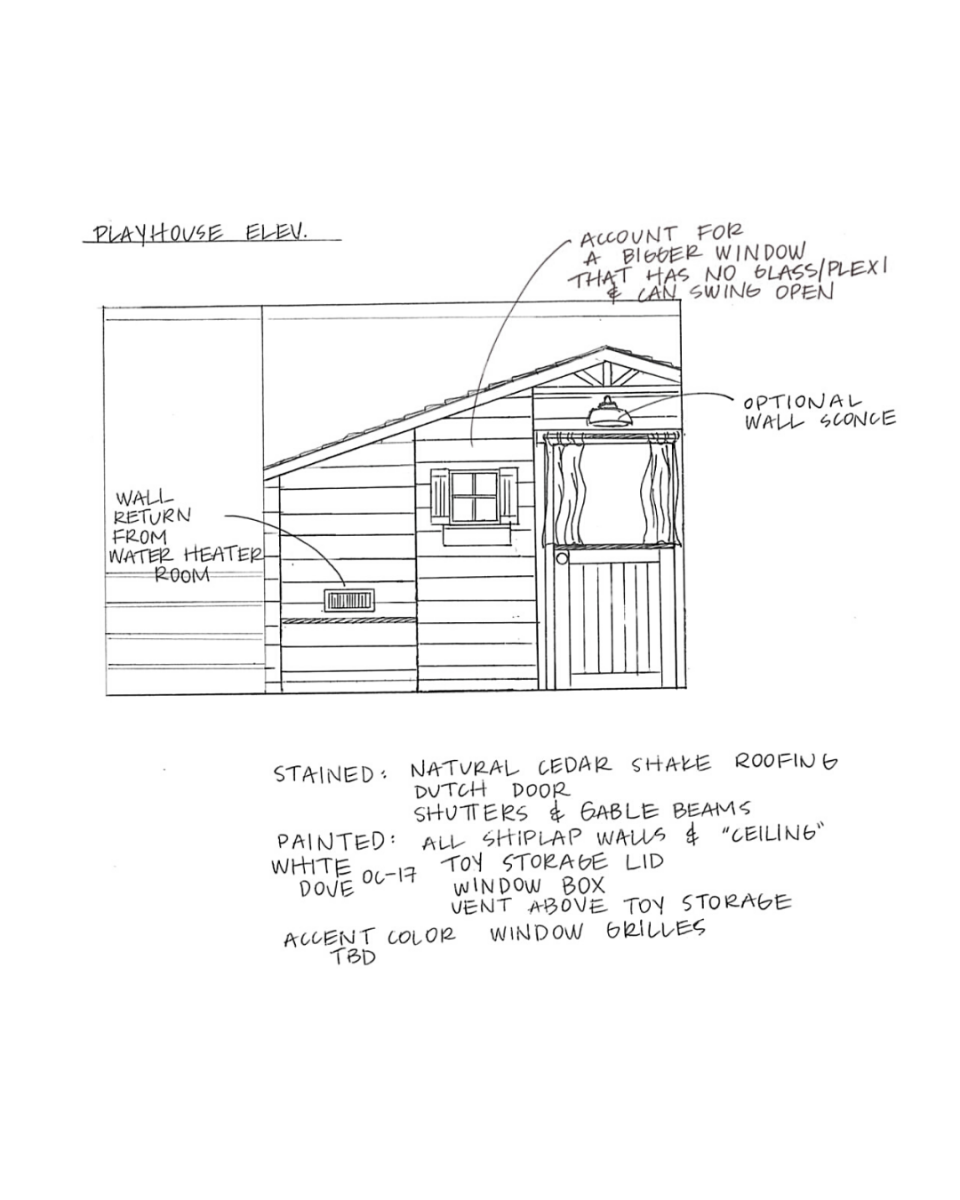 PLAYHOUSE ELEV.
ACCOUNT FOR
A BIGGER WINDOW
THAT HAS NO GLASS/PLEXI
& CAN SWING OPEN
OPTIONAL
WALL SCONCE
WALL
RETURN
FROM
WATER HEATER
ROOM
STAINED: NATURAL CEDAR SHAKE ROOFING
DUTCH DOOR
SHUTTERS & GABLE BEAMS
PAINTED: ALL SHIPLAP WALLS & "CEILING"
WHITE TOY STORAGE LID
DOVE OC-17 WINDOW BOX
VENT ABOVE TOY STORAGE
ACCENT COLOR WINDOW GRILLES
TBD